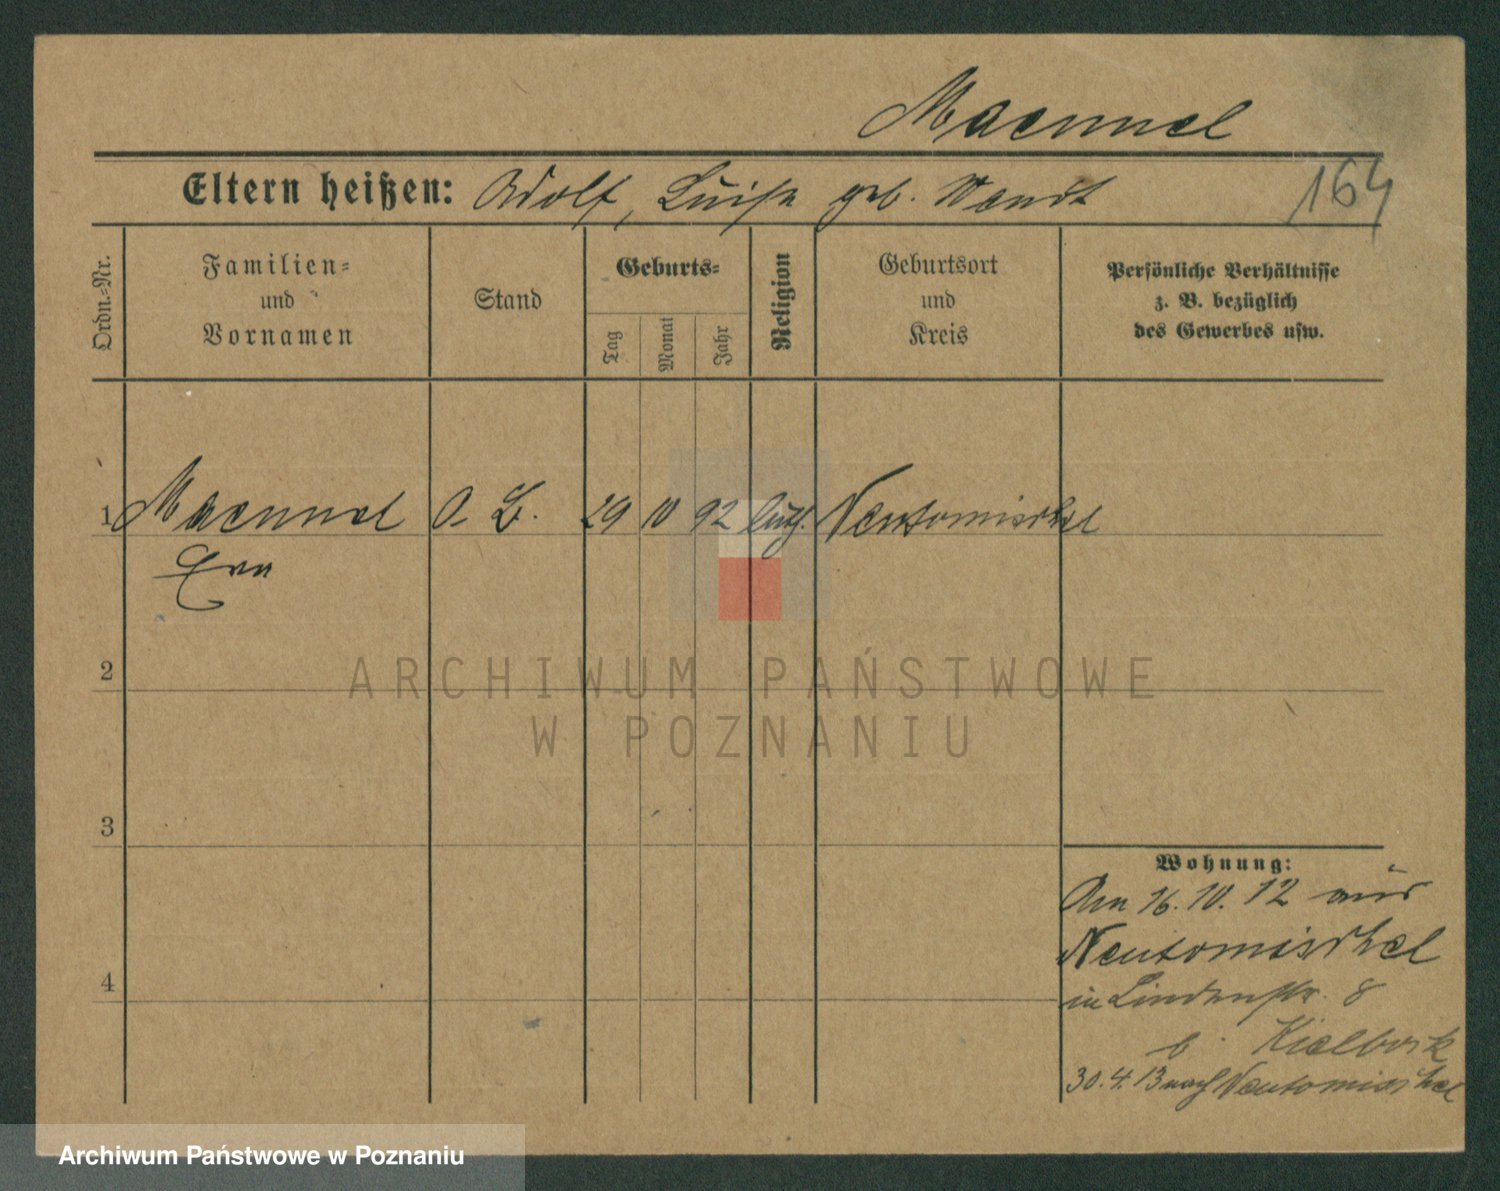 Maennel
Eltern heißen: Adolf, Luise geb. Wendt
164
Ordn.-Nr.
Familien-
und
Vornamen
Stand
Geburts-
Tag
Monat
Jahr
Religion
Geburtsort
und
Kreis
Persönliche Verhältnisse
z. B. bezüglich
des Gewerbes usw.
1 Maennel 29 10 92 luth. Neutomischel
Eva
2
ARCHIWUM PAŃSTWOWE
W POZNANIU
3
Wohnung:
Am 16. 10. 12 aus
Neutomischel
4
in Lindenstr. 8
b. Kielbock
30. 4. 13 nach Neutomischel
Archiwum Państwowe w Poznaniu